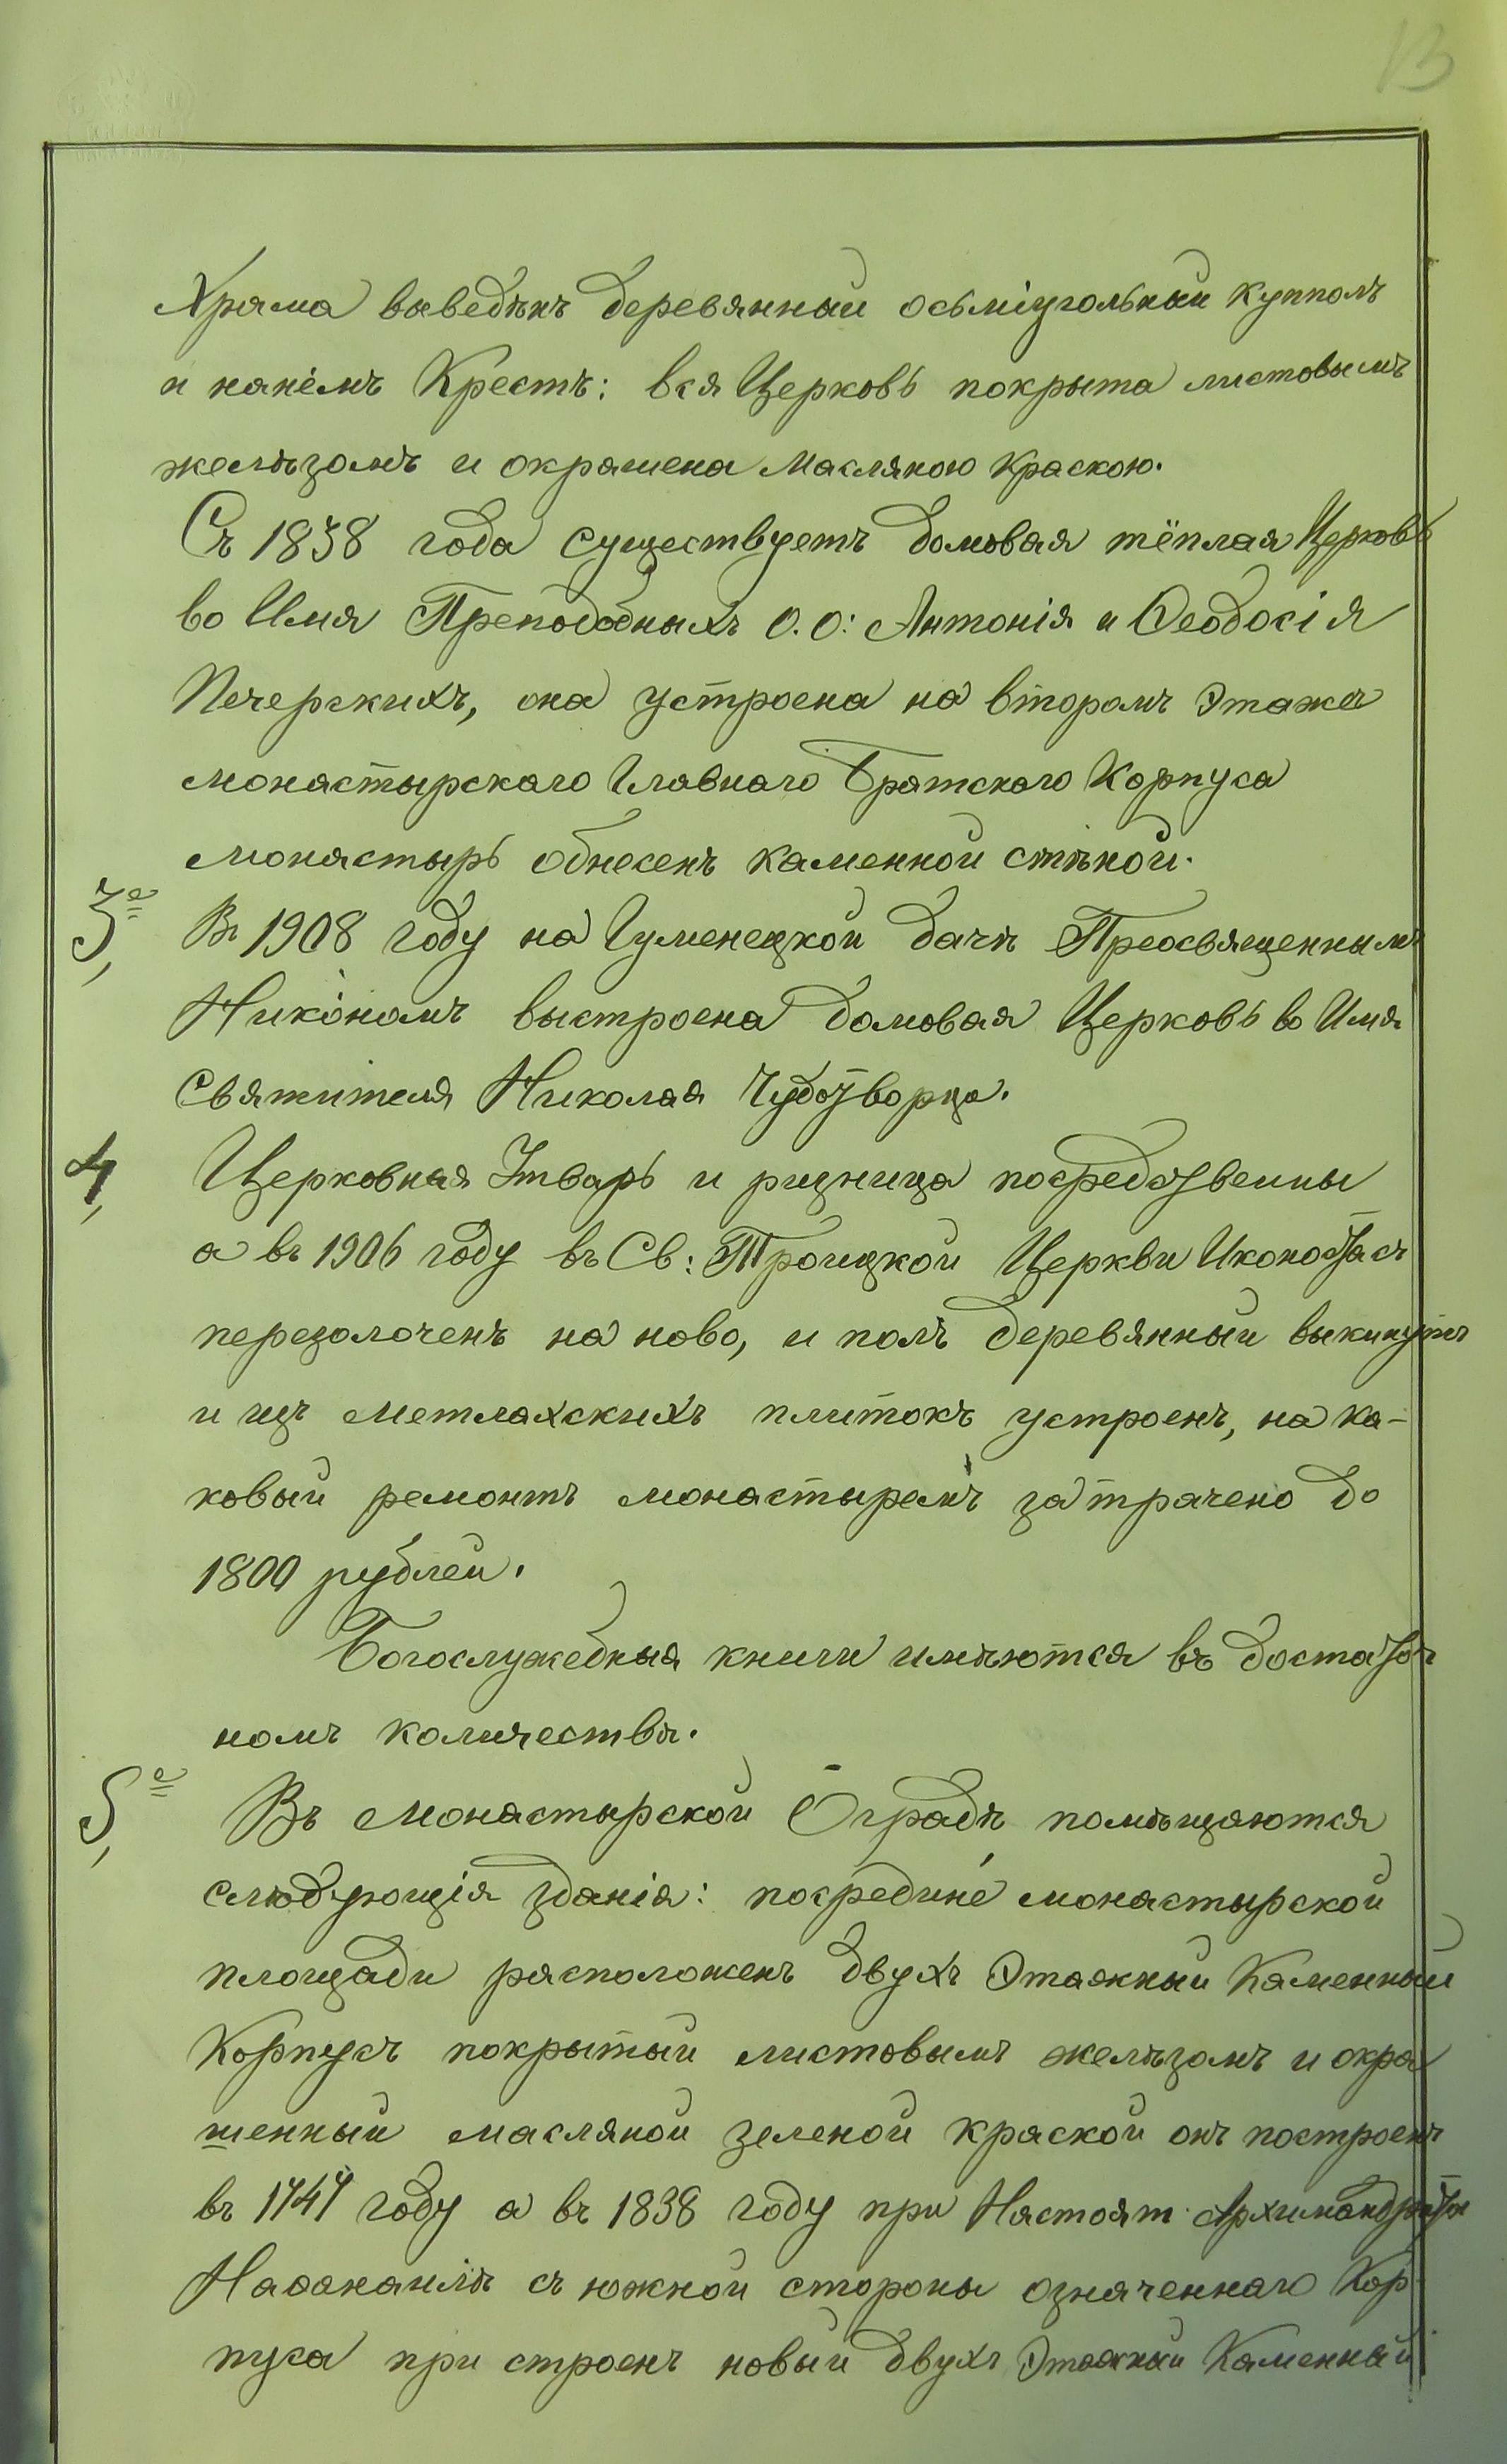 13
Храма выведѣнъ деревянный осьміугольный кумполъ
и нанёмъ Крестъ: вся Церковь покрыта листовымъ
желѣзомъ и окрашена масляною краскою.
Съ 1838 года существуетъ домовая тёплая Церковь
во Имя Преподобныхъ О.О: Антонія и Ѳеодосія
Печерскихъ, она устроена на второмъ Этаже
монастырскаго Главнаго Братскаго Корпуса
монастырь обнесенъ каменной стѣной.
3е, Въ 1908 году на Гуменецкой дачѣ Преосвященнымъ
Никономъ выстроена домовая Церковь во Имя
Святителя Николая Чудотворца.
4, Церковная Утварь и ризница посредственны
а въ 1906 году въ Св: Троицкой Церкви Иконостасъ
перезолоченъ на ново, и полъ деревянный выкинутъ
и изъ метлахскихъ плитокъ устроенъ, на ка-
ковый ремонтъ монастыремъ затрачено до
1800 рублей.
Богослужебныя книги имѣются въ достаточ
номъ количествѣ.
5е, Въ Монастырской Оградѣ помѣщаются
слѣдующія зданія: посредине монастырской
площади расположенъ двухъ Этажный Каменный
Корпусъ покрытый листовымъ желѣзомъ и окра
шенный масляной зеленой краской онъ построенъ
въ 1747 году а въ 1838 году при Настоят. Архимандритѣ
Наѳанаилѣ съ южной стороны означеннаго Кор
пуса при строенъ новый двухъ Этажный Каменный